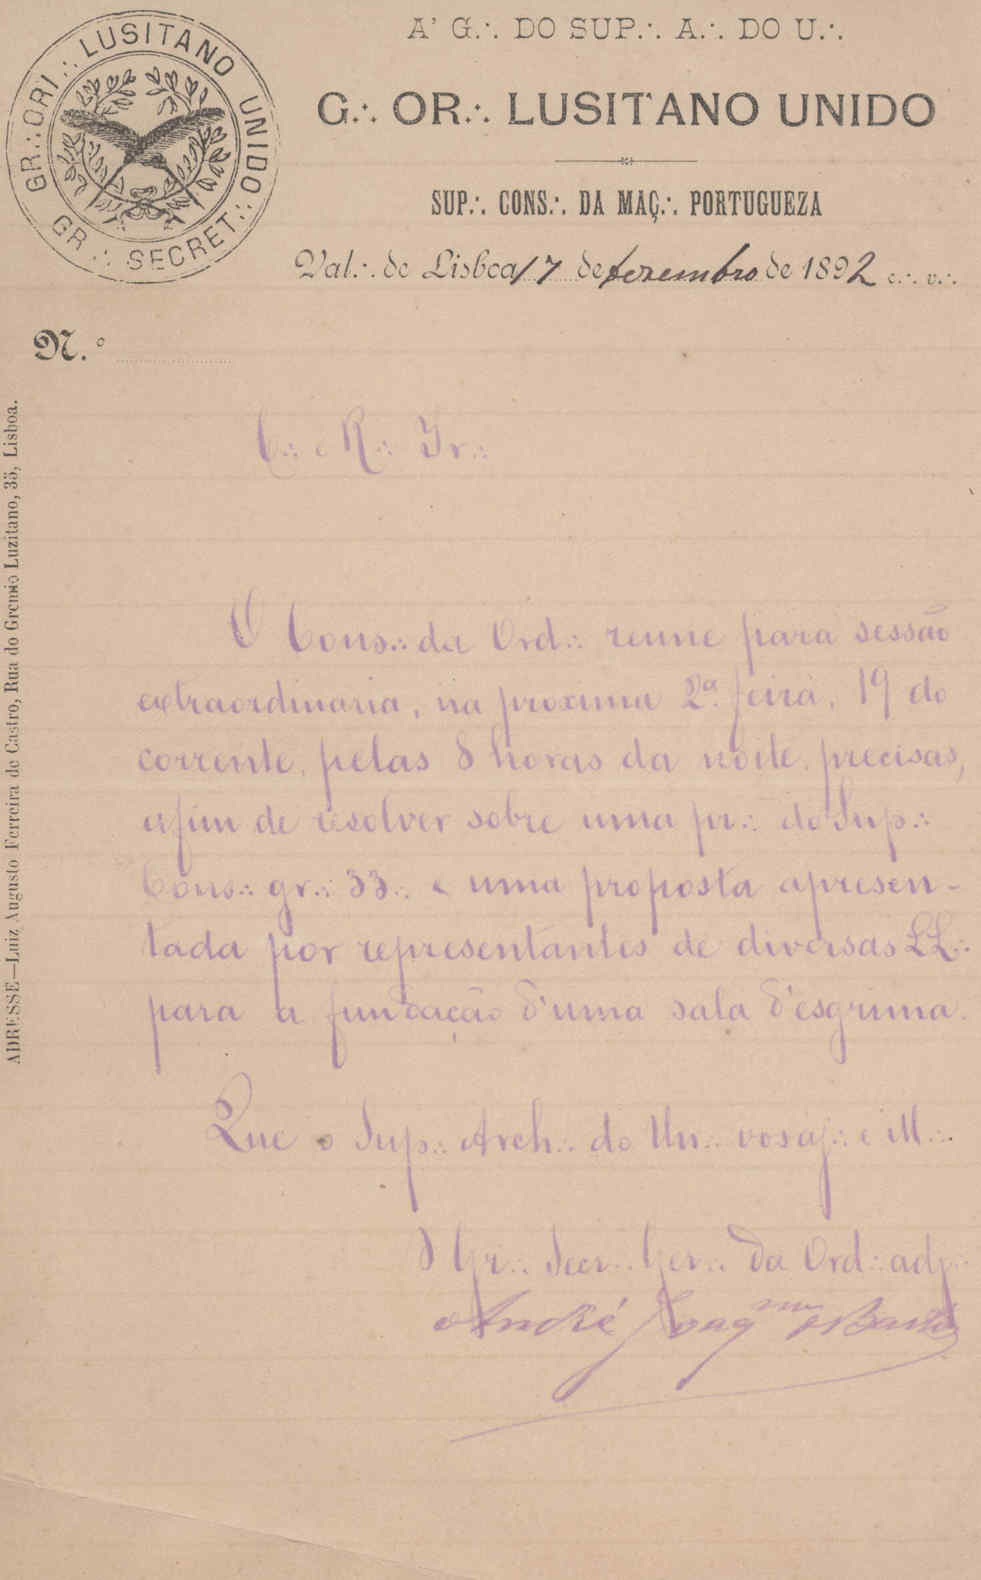 A' G.·. DO SUP.·. A.·. DO U.·.
GR.·. ORI.·. LUSITANO UNIDO
GR.·. SECRET.·.
G.·. OR.·. LUSITANO UNIDO
SUP.·. CONS.·. DA MAÇ.·. PORTUGUEZA
Val.·. de Lisboa 17 de dezembro de 1892 e.·. v.·.
N.º
C.·. e R.·. Ir.·.
O Cons.·. da Ord.·. reune para sessão
extraordinaria, na proxima 2ª feira, 19 do
corrente, pelas 8 horas da noite, precisas,
afim de resolver sobre uma pr.·. do Sup.·.
Cons.·. gr.·. 33.·. e uma proposta apresen-
tada por representantes de diversas LL.·.
para a fundação d'uma sala d'esgrima.
Que o Sup.·. Arch.·. do Un.·. vos aj.·. e ill.·.
O Gr.·. Secr.·. Ger.·. da Ord.·. adj.·.
André Joaqm
ADRESSE—Luiz Augusto Ferreira de Castro, Rua do Gremio Luzitano, 35, Lisboa.